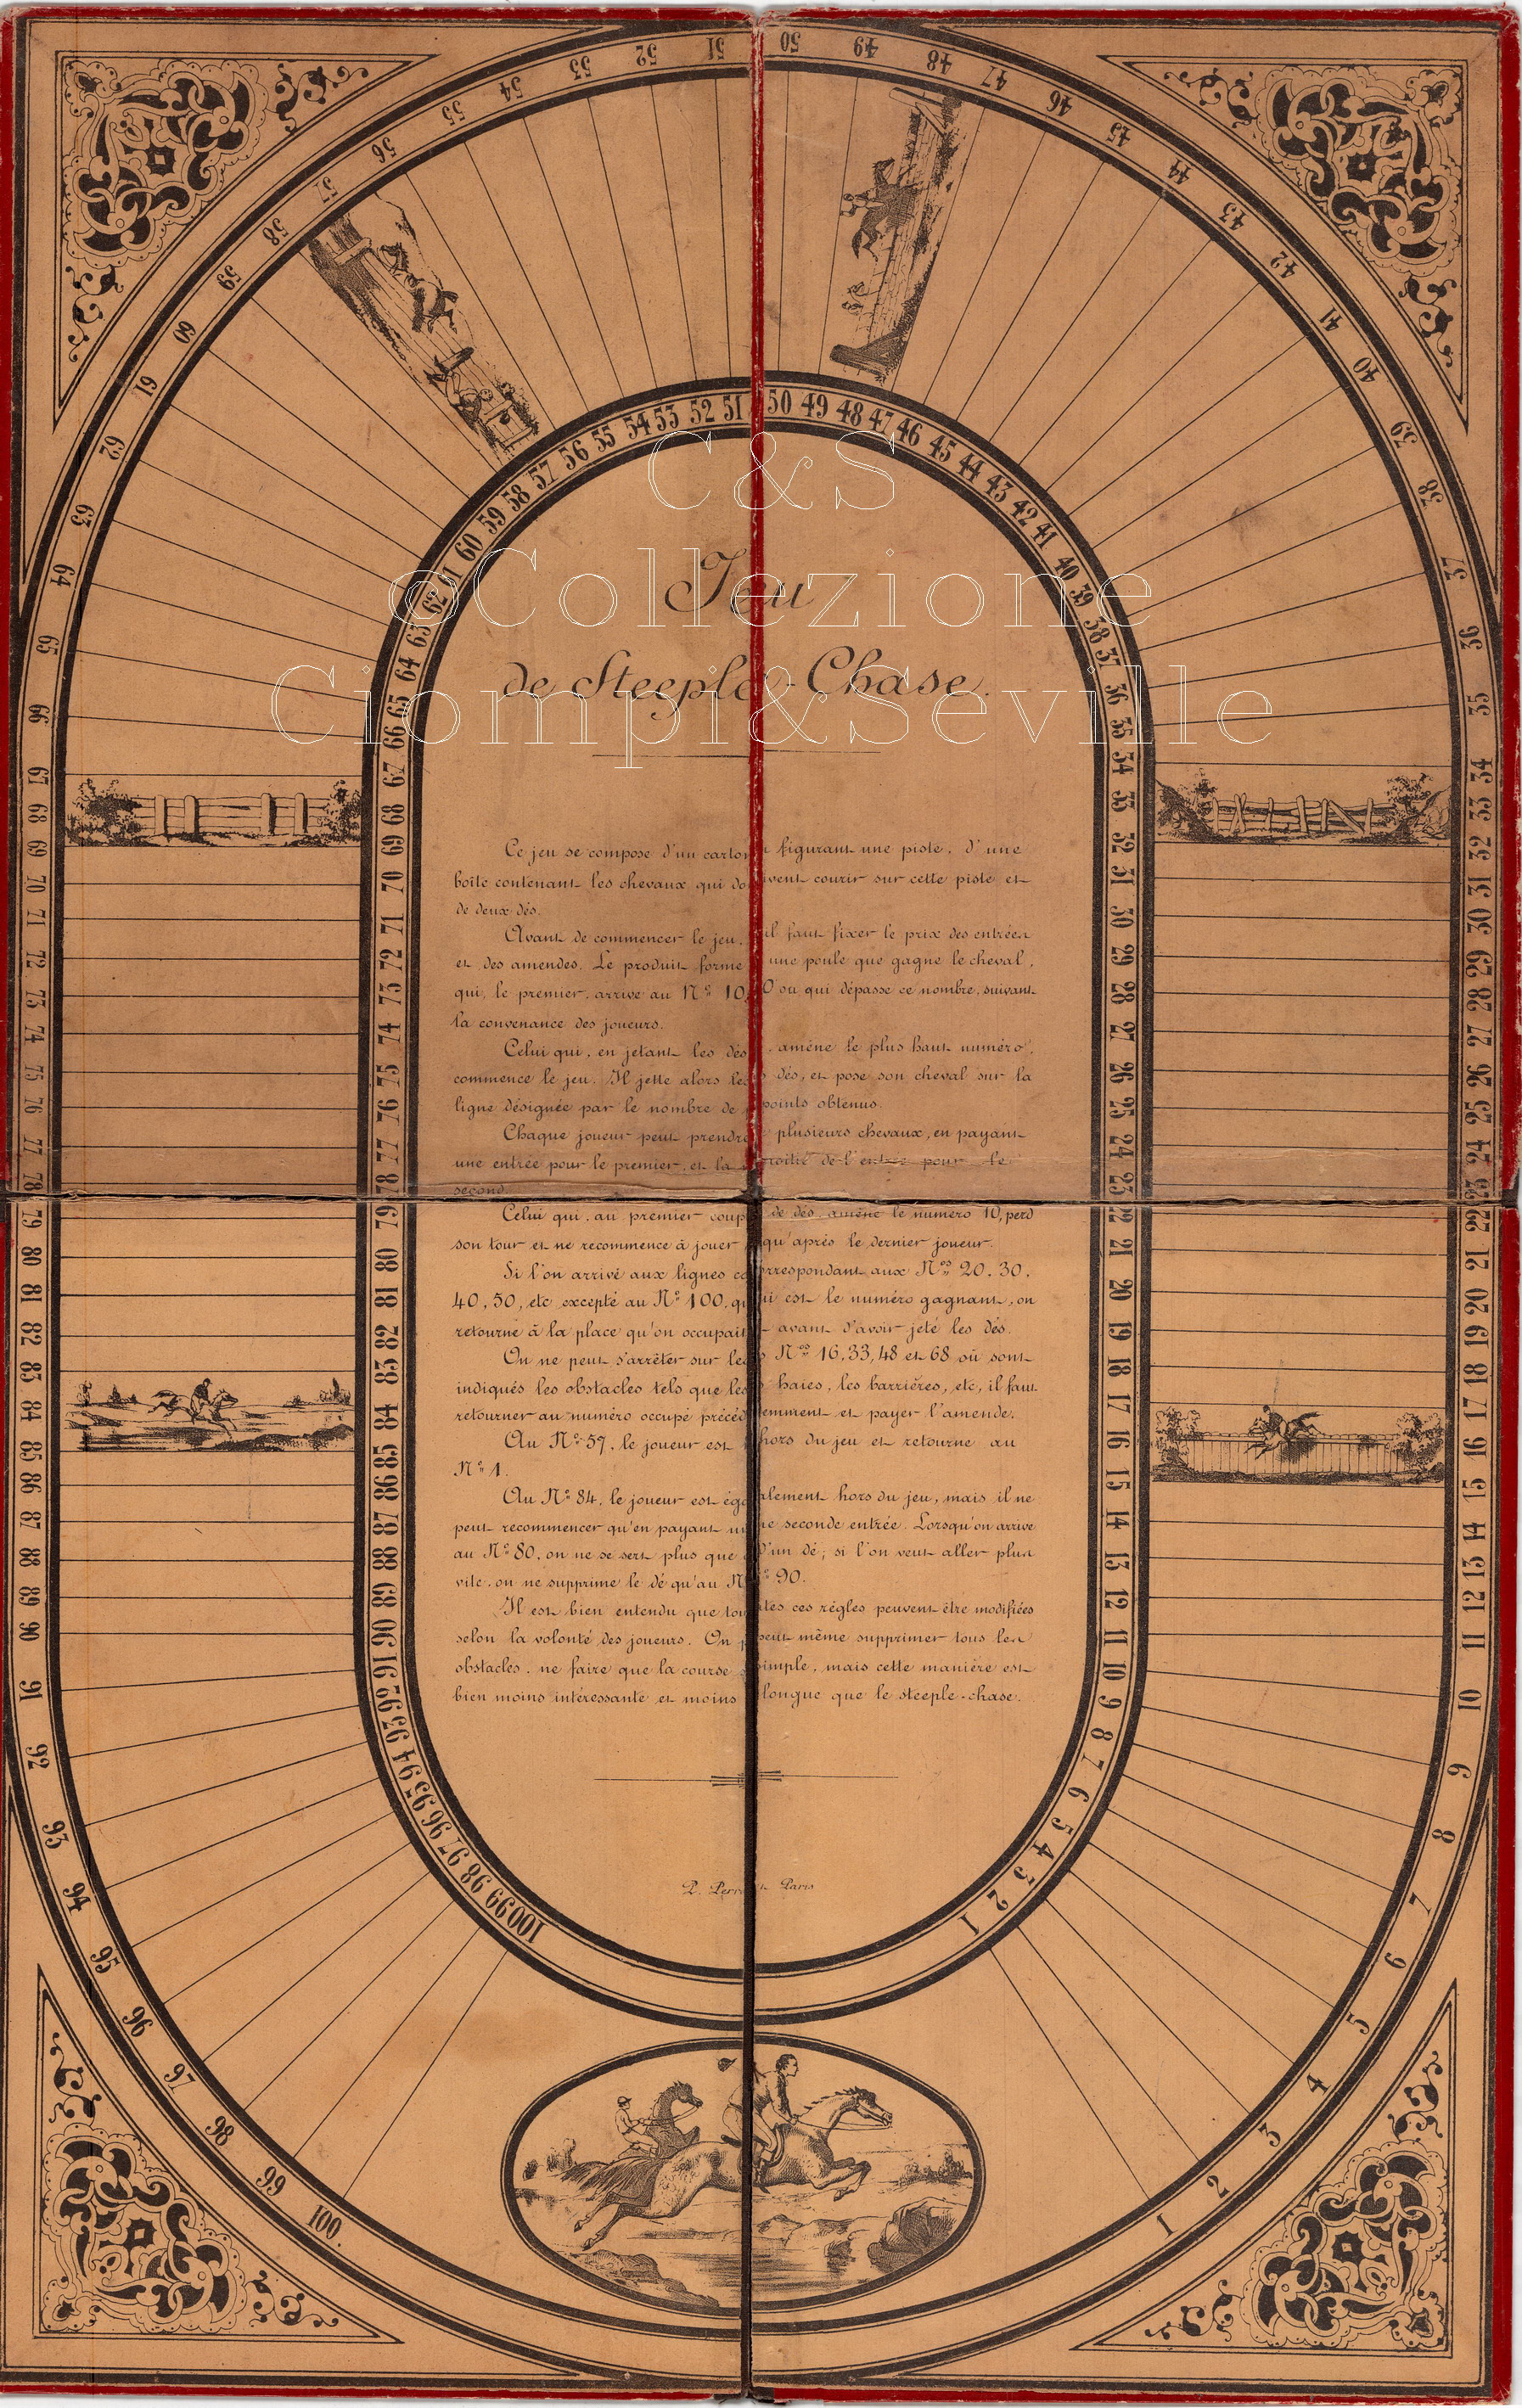 C&S
©Collezione
Ciompi&Seville
Jeu
de Steeple-Chase.
Ce jeu se compose d'un carton figurant une piste, d'une
boîte contenant les chevaux qui doivent courir sur cette piste et
de deux dés.
Avant de commencer le jeu, il faut fixer le prix des entrées
et des amendes. Le produit forme une poule que gagne le cheval,
qui, le premier, arrive au Nº 100 ou qui dépasse ce nombre, suivant
la convenance des joueurs.
Celui qui, en jetant les dés, amène le plus haut numéro,
commence le jeu. Il jette alors les dés, et pose son cheval sur la
ligne désignée par le nombre de points obtenus.
Chaque joueur peut prendre plusieurs chevaux, en payant
une entrée pour le premier, et la moitié de l'entrée pour le
second.
Celui qui, au premier coup de dés, amène le numéro 10, perd
son tour et ne recommence à jouer qu'après le dernier joueur.
Si l'on arrive aux lignes correspondant aux Nos 20, 30,
40, 50, etc excepté au Nº 100, qui est le numéro gagnant, on
retourne à la place qu'on occupait avant d'avoir jeté les dés.
On ne peut s'arrêter sur les Nos 16, 33, 48 et 68 où sont
indiqués les obstacles tels que les haies, les barrières, etc, il faut
retourner au numéro occupé précédemment et payer l'amende.
Au Nº 57, le joueur est hors du jeu et retourne au
Nº 1.
Au Nº 84, le joueur est également hors du jeu, mais il ne
peut recommencer qu'en payant une seconde entrée. Lorsqu'on arrive
au Nº 80, on ne se sert plus que d'un dé; si l'on veut aller plus
vite, on ne supprime le dé qu'au Nº 90.
Il est bien entendu que toutes ces règles peuvent être modifiées
selon la volonté des joueurs. On peut même supprimer tous les
obstacles, ne faire que la course simple, mais cette manière est
bien moins intéressante et moins longue que le steeple-chase.
Paris
1 2 3 4 5 6 7 8 9 10 11 12 13 14 15 16 17 18 19 20 21 22 23 24 25 26 27 28 29 30 31 32 33 34 35 36 37 38 39 40 41 42 43 44 45 46 47 48 49 50 51 52 53 54 55 56 57 58 59 60 61 62 63 64 65 66 67 68 69 70 71 72 73 74 75 76 77 78 79 80 81 82 83 84 85 86 87 88 89 90 91 92 93 94 95 96 97 98 99 100.
1 2 3 4 5 6 7 8 9 10 11 12 13 14 15 16 17 18 19 20 21 22 23 24 25 26 27 28 29 30 31 32 33 34 35 36 37 38 39 40 41 42 43 44 45 46 47 48 49 50 51 52 53 54 55 56 57 58 59 60 61 62 63 64 65 66 67 68 69 70 71 72 73 74 75 76 77 78 79 80 81 82 83 84 85 86 87 88 89 90 91 92 93 94 95 96 97 98 99 100